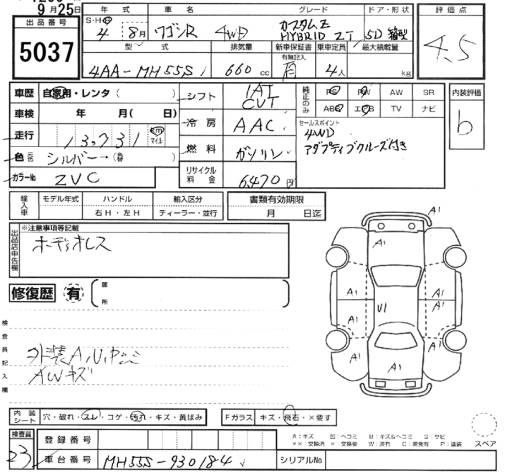 9月25日
出品番号
5037
年式 車名 グレード ドア・形状
S・H・R 4年 8月 ワゴンR 4WD カスタムZ HYBRID ZT 5D 箱型
型式 排気量 新車保証書 乗車定員 最大積載量
有無記入
4AA-MH55S 660cc 有 4人 kg
評価点
4.5
車歴 自家用・レンタ( )
車検 年 月( )
走行 13,731 km マイル
色 シルバー
カラーNo. ZVC
シフト IAT CVT
冷房 AAC
燃料 ガソリン
リサイクル料金 6,470円
純正のみ PS PW AW SR
ABS エアB TV ナビ
セールスポイント
4WD
アダプティブクルーズ付き
内装評価
b
輸入車 モデル年式 ハンドル 右H・左H 輸入区分 ディーラー・並行 書類有効期限 月 日迄
出品店申告欄
※注意事項等記載
オーディオレス
修復歴 有 箇所
検査員記入欄
外装A,U,
AWキズ
A1
A1
A1
A1
A1
A1
U1
A1
A1
A1
内装シート 穴・破れ・スレ・コゲ・汚れ・キズ・黄ばみ Fガラス キズ・飛石・×要す
スペア
検査員
23
登録番号
車台番号 MH55S-930184 シリアルNo.